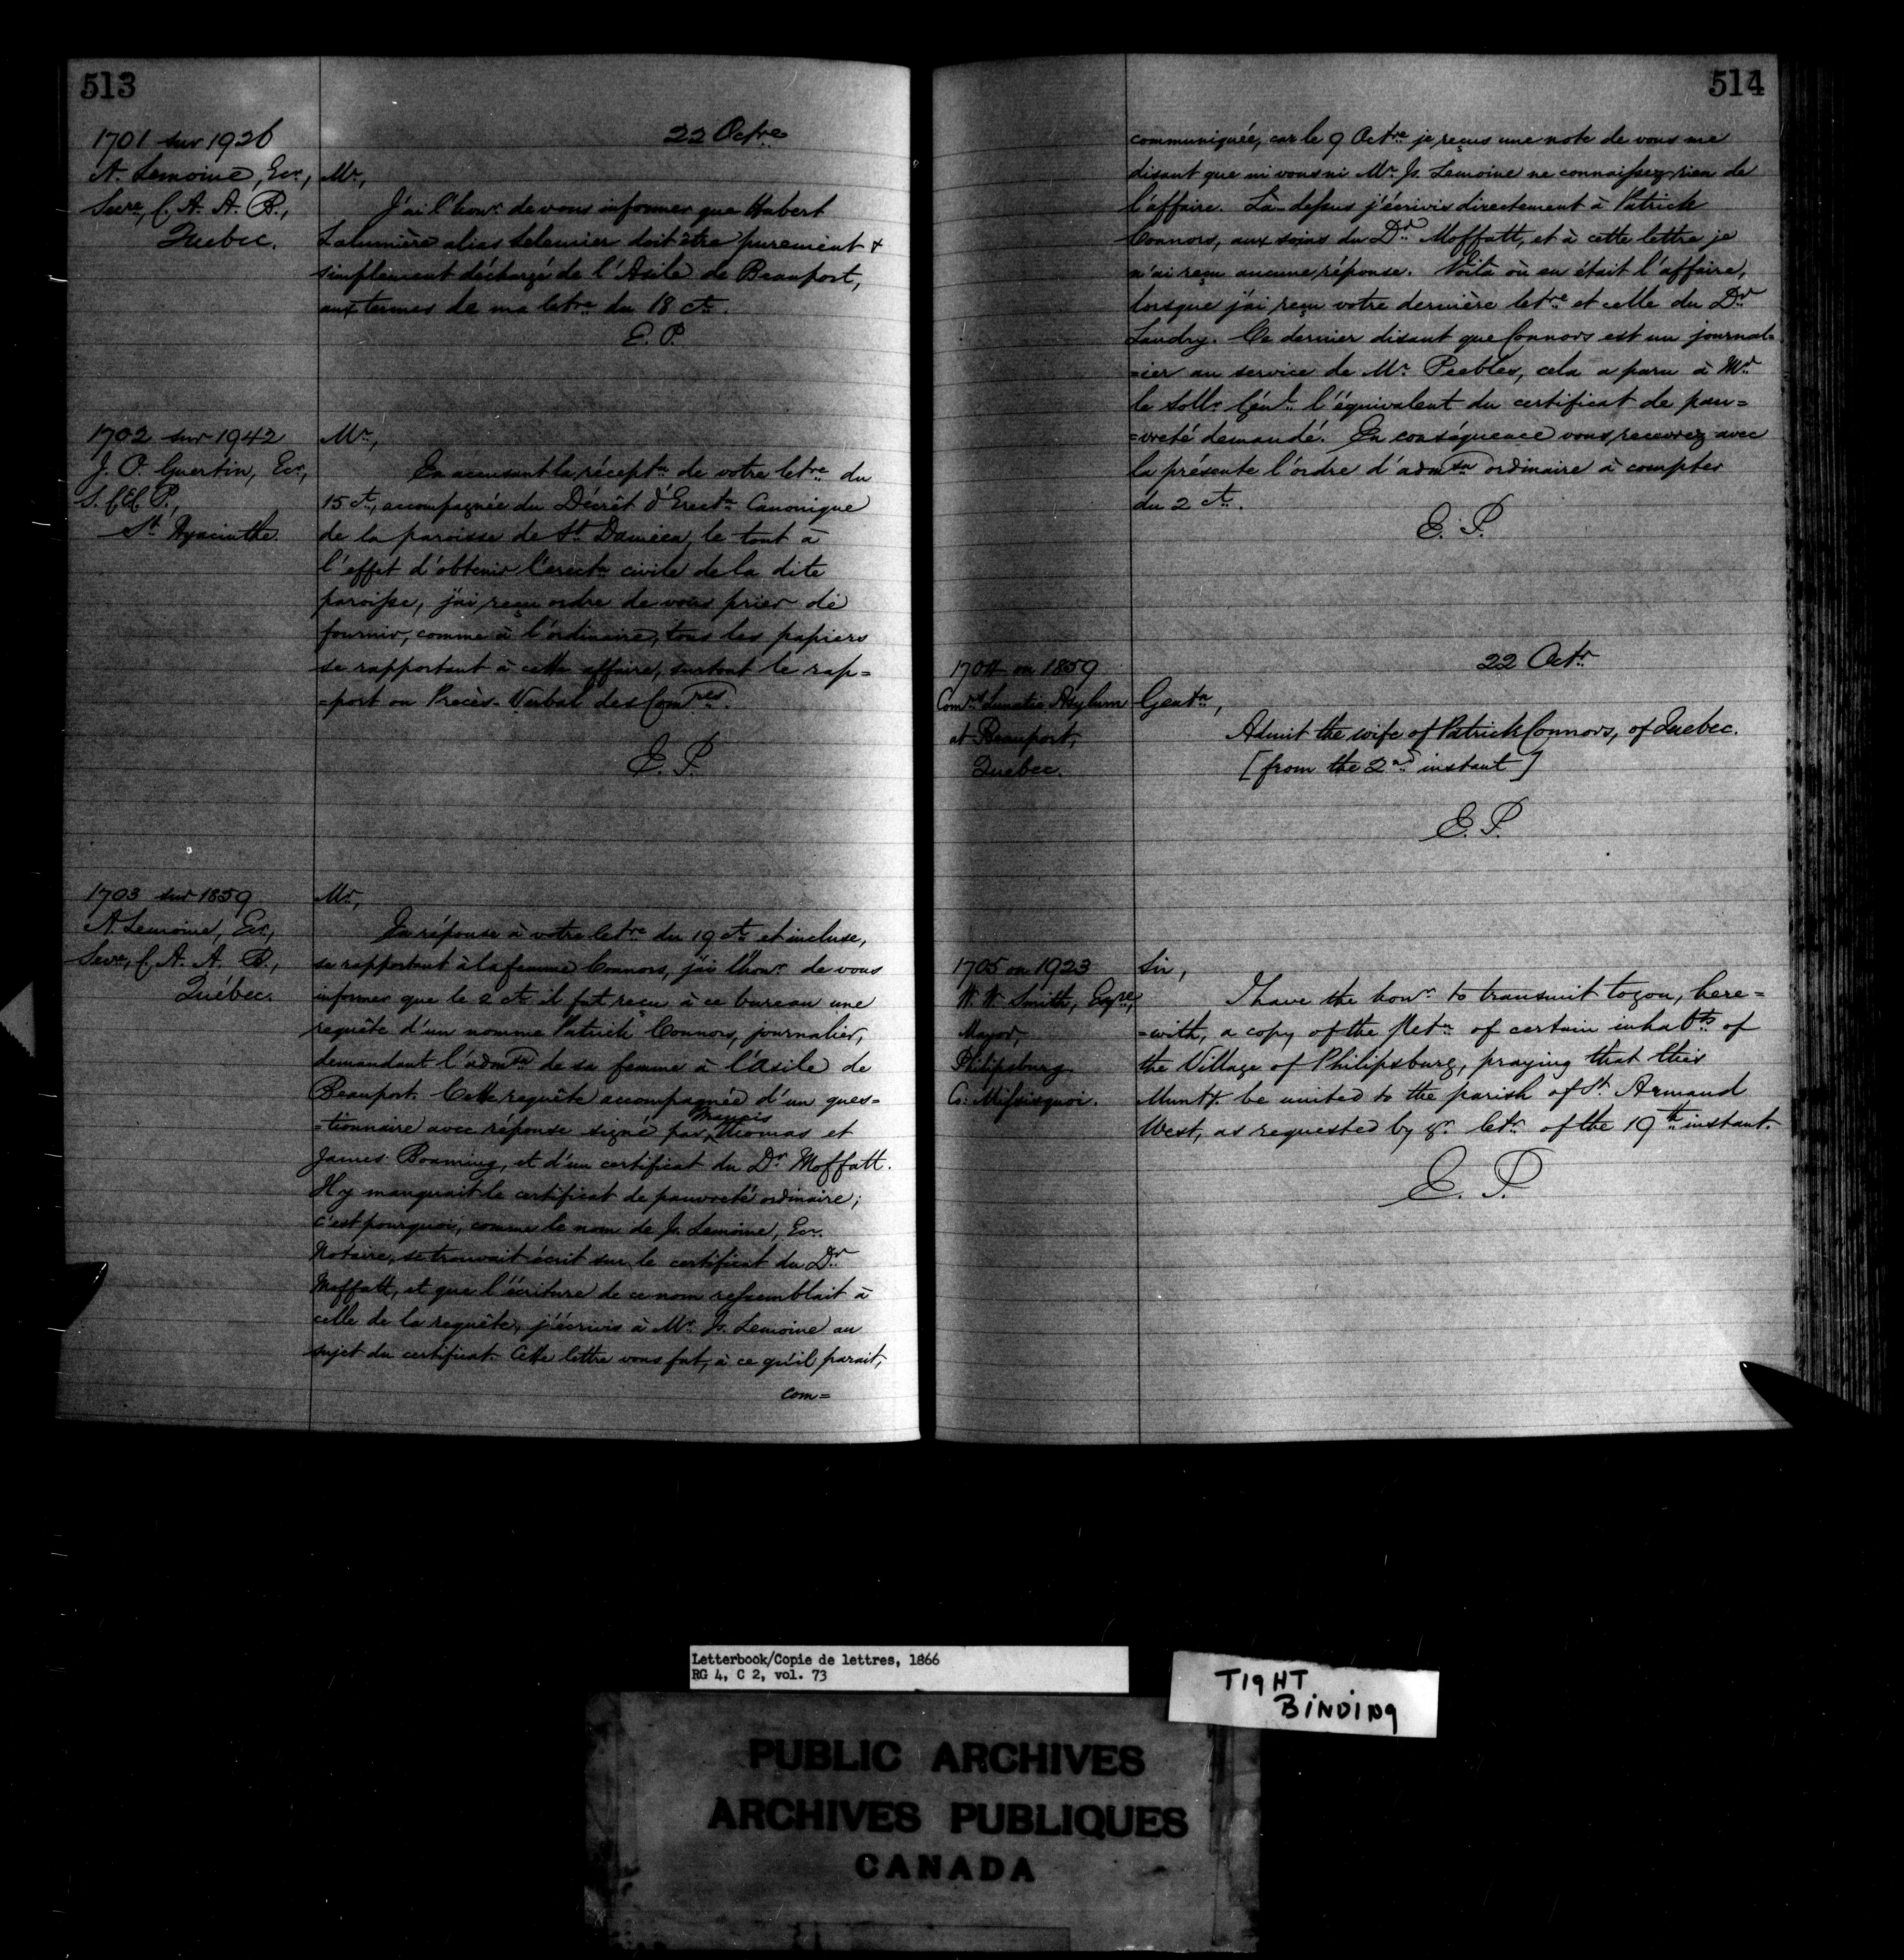 513
22 Octre
1701 sur 1926
A. Lemoine, Ecr.,
Secre, C. A. A. B.,
Quebec.
Mr,
J'ai l'honr de vous informer que Hubert
Lalumière alias Lelemier doit être purement &
simplement déchargé de l'Asile de Beauport,
aux termes de ma letre du 18 ct.
E. P.
1702 sur 1942
J. O. Guertin, Ecr,
S. C. E. C. P.,
St Hyacinthe.
Mr,
En accusant la réceptn de votre letre du
15 ct, accompagnée du Décrèt d'Erectn Canonique
de la paroisse de St Damien, le tout à
l'effet d'obtenir l'erectn civile de la dite
paroisse, j'ai reçu ordre de vous prier de
fournir, comme à l'ordinaire, tous les papiers
se rapportant à cette affaire, surtout le rap=
=port ou Procès-Verbal des Comres.
E. P.
1703 sur 1859
A Lemoine, Ecr,
Secre, C. A. A. B.,
Québec.
Mr,
En réponse à votre letre du 19 ct et incluse,
se rapportant à la femme Connors, j'ai l'honr de vous
informer que le 2 ct il fut reçu à ce bureau une
requête d'un nomme Patrick Connors, journalier,
demandant l'admsn de sa femme à l'Asile de
Beauport. Cette requête accompagnée d'un ques=
=tionnaire avec réponse signé par Francis Thomas et
James Boaming, et d'un certificat du Dr Moffatt.
Il y manquait le certificat de pauvreté ordinaire;
c'est pourquoi, comme le nom de Js. Lemoine, Ecr.
Notaire, se trouvait écrit sur le certificat du Dr
Moffatt, et que l'écriture de ce nom ressemblait à
celle de la requête, j'écrivis à Mr Js. Lemoine au
sujet du certificat. Cette lettre vous fut, à ce qu'il parait,
com=
514
communiquée, car le 9 Octre je reçus une note de vous me
disant que ni vous ni Mr Js. Lemoine ne connaissez rien de
l'affaire. Là-dessus j'écrivis directement à Patrick
Connors, aux soins du Dr Moffatt, et à cette lettre je
n'ai reçu aucune réponse. Voilà où en était l'affaire,
lorsque j'ai reçu votre dernière letre et celle du Dr
Landry. Ce dernier disant que Connors est un journal=
=ier au service de Mr Peebles, cela a paru à Mr
le Sollr Génl l'équivalent du certificat de pau=
=vreté demandé. En conséquence vous recevrez avec
la présente l'ordre d'admsn ordinaire à compter
du 2 ct.
E. P.
22 Octr
1704 on 1859
Comrs Lunatic Asylum
at Beauport,
Quebec.
Gentn,
Admit the wife of Patrick Connors, of Quebec.
[from the 2nd instant]
E. P.
1705 on 1923
W. W. Smith, Esqre,
Mayor,
Philipsburg
Co: Missisquoi.
Sir,
I have the honr to transmit to you, here=
=with, a copy of the Petn of certain inhabts of
the Village of Philipsburg, praying that this
Munty. be united to the parish of St. Armand
West, as requested by yr. letr of the 19th instant.
E. P.
Letterbook/Copie de lettres, 1866
RG 4, C 2, vol. 73
TIGHT
BINDING
PUBLIC ARCHIVES
ARCHIVES PUBLIQUES
CANADA